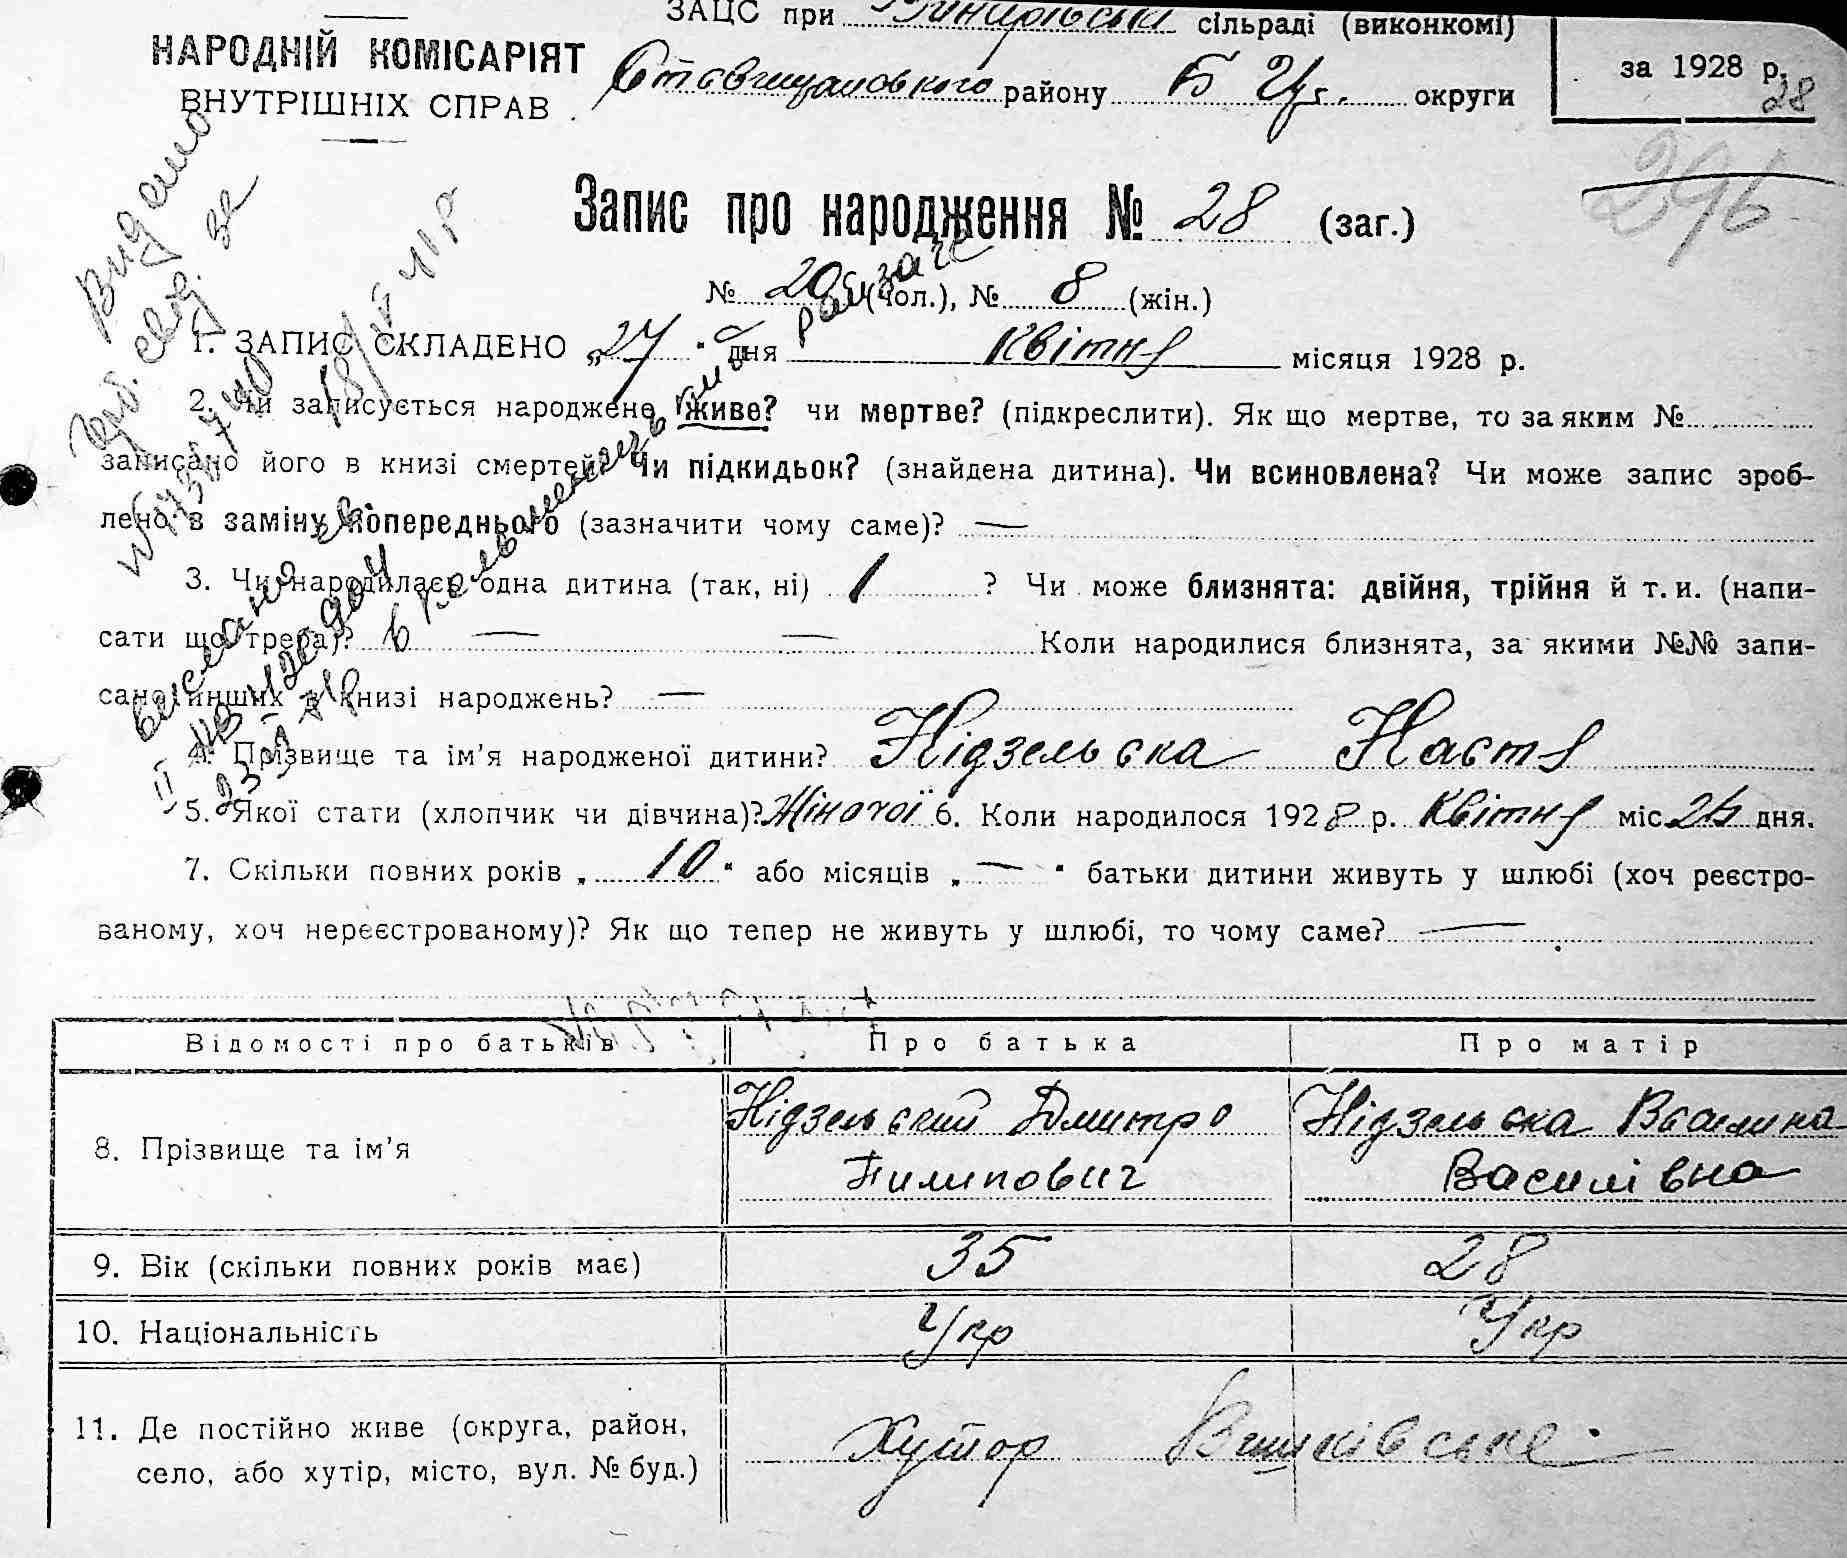 ЗАЦС при сільраді (виконкомі)
НАРОДНІЙ КОМІСАРІЯТ
ВНУТРІШНІХ СПРАВ
району Б Ц округи
за 1928 р.
28
296
Запис про народження № 28 (заг.)
№ 20 (чол.), № 8 (жін.)
1. ЗАПИС СКЛАДЕНО „27" дня Квітня місяця 1928 р.
2. Чи записується народжене живе? чи мертве? (підкреслити). Як що мертве, то за яким №
записано його в книзі смертей? Чи підкидьок? (знайдена дитина). Чи всиновлена? Чи може запис зроб-
лено в заміну попереднього (зазначити чому саме)? —
3. Чи народилась одна дитина (так, ні) 1 ? Чи може близнята: двійня, трійня й т. и. (напи-
сати що треба)? — — Коли народилися близнята, за якими №№ запи-
сано инших в книзі народжень? —
4. Прізвище та ім'я народженої дитини? Нідзельська Настя
5. Якої стати (хлопчик чи дівчина)? Жіночої 6. Коли народилося 1928 р. Квітня міс дня.
7. Скільки повних років „ 10 " або місяців „ — " батьки дитини живуть у шлюбі (хоч реєстро-
ваному, хоч нереєстрованому)? Як що тепер не живуть у шлюбі, то чому саме? —
Відомості про батьків Про батька Про матір
8. Прізвище та ім'я Нідзельський Дмитро Нідзельська Василина
Пилипович Василівна
9. Вік (скільки повних років має) 35 28
10. Національність Укр Укр
11. Де постійно живе (округа, район,
село, або хутір, місто, вул. № буд.) Хутор
Видано